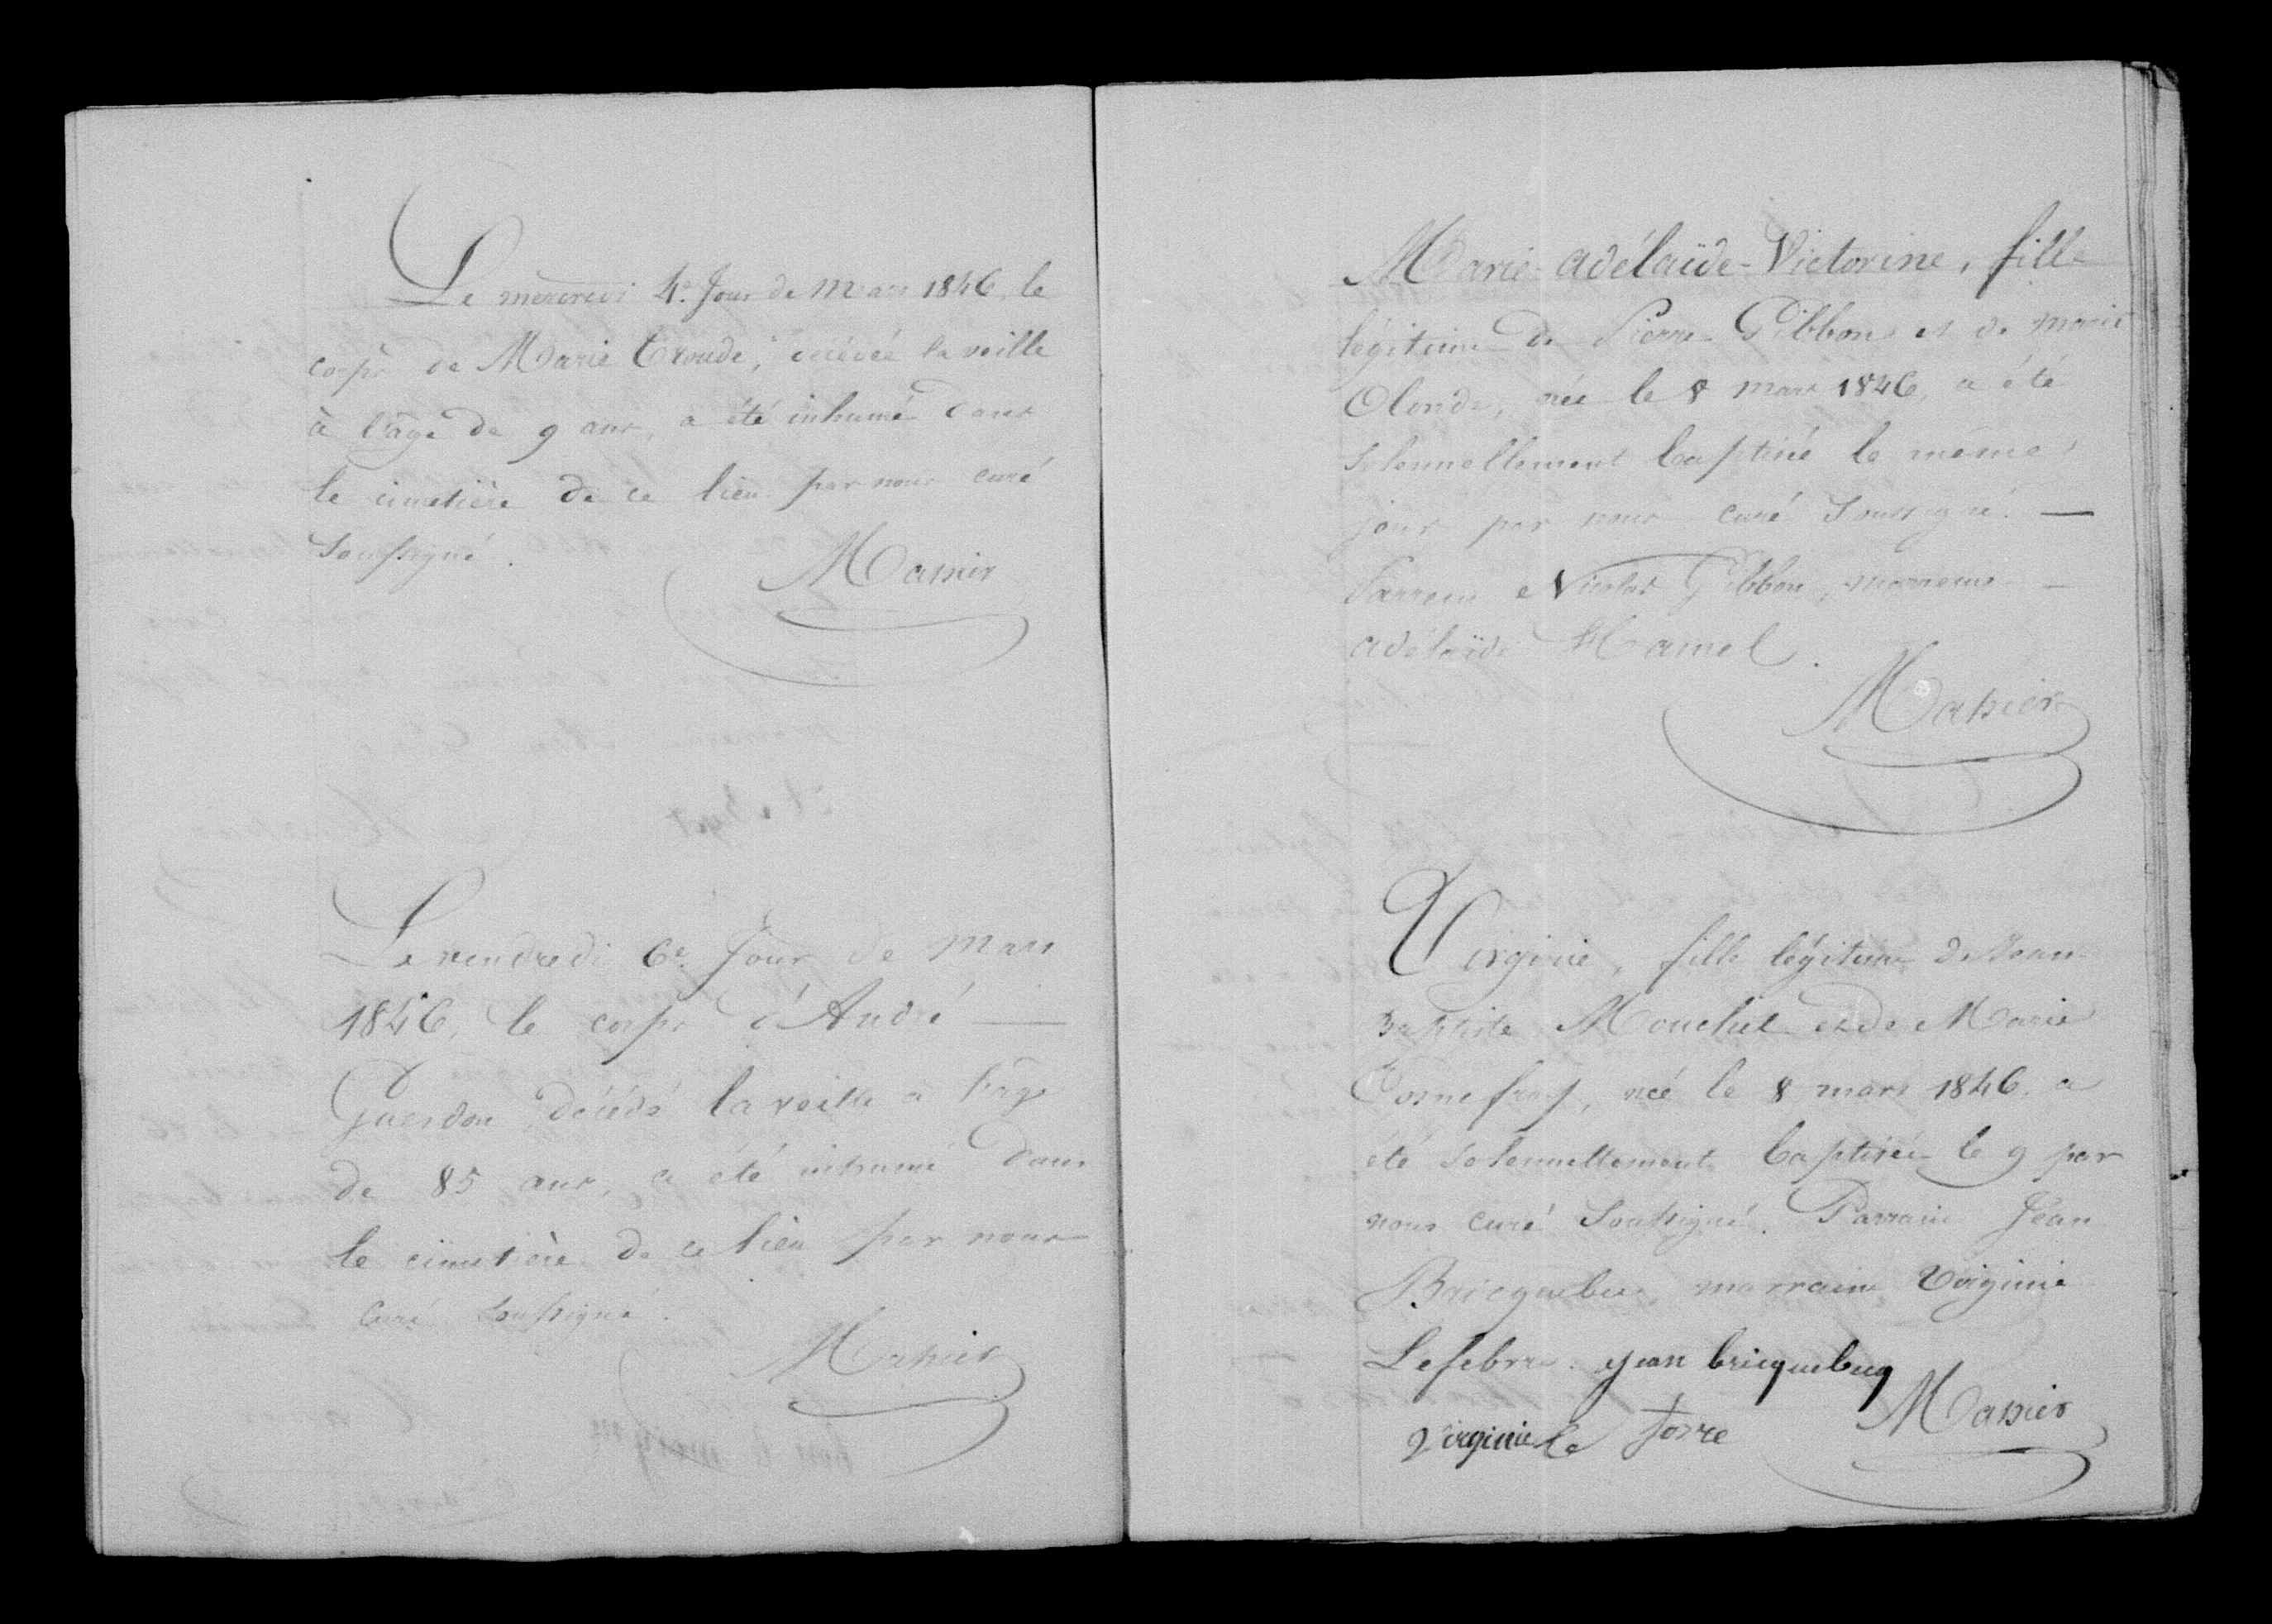 Le mercredi 4e. Jour de Mars 1846, le
corps de Marie Troude, décédée la veille
à l'age de 9 ans, a été inhumé dans
le cimetière de ce lieu par nous curé
Soussigné.
Mahier
Le vendredi 6e. Jour de Mars
1846, le corps d'André —
Guerdon décédé la veille à l'age
de 85 ans, a été inhumé dans
le cimetière de ce lieu par nous
curé soussigné.
Mahier
Marie-Adélaïde-Victorine, fille
légitime de Pierre Gibbon et de Marie
Olonde, née le 8 mars 1846, a été
solennellement baptisée le même
jour par nous curé Soussigné. —
Parrain Nicolas Gibbon, marraine —
adélaïde Hamel.
Mahier
Virginie, fille légitime de Jean
Baptiste Mouchel et de Marie
née le 8 mars 1846, a
été solennellement baptisée le 9 par
nous curé Soussigné. Parrain Jean
Bricquebec, marraine Virginie
Lefebvre. jean bricquebecq
Virginie le Mahier